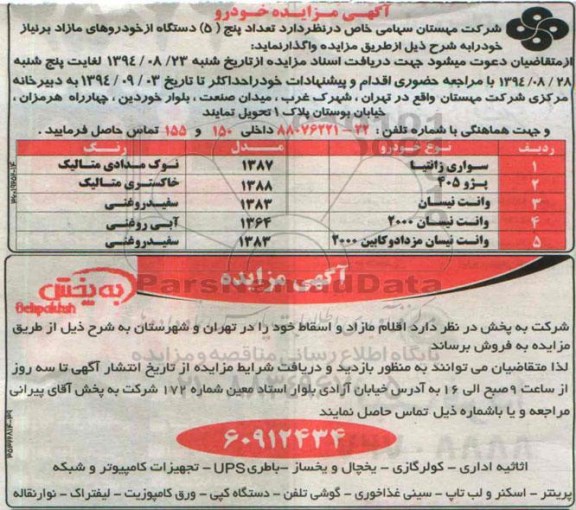 آگهی مزایده خودرو
شرکت مهستان سهامی خاص درنظردارد تعداد پنج (۵) دستگاه ازخودروهای مازاد برنیاز
خودرابه شرح ذیل ازطریق مزایده واگذارنماید:
ازمتقاضیان دعوت میشود جهت دریافت اسناد مزایده ازتاریخ شنبه ۱۳۹۴/۰۸/۲۳ لغایت پنج شنبه
۱۳۹۴/۰۸/۲۸ با مراجعه حضوری اقدام و پیشنهادات خودراحداکثر تا تاریخ ۱۳۹۴/۰۹/۰۳ به دبیرخانه
مرکزی شرکت مهستان واقع در تهران، شهرک غرب، میدان صنعت، بلوار خوردین، چهارراه هرمزان،
خیابان بوستان پلاک ۱ تحویل نمایند
و جهت هماهنگی با شماره تلفن: ۲۲-۸۸۰۷۶۲۲۱ داخلی ۱۵۰ و ۱۵۵ تماس حاصل فرمایید.
ردیف نوع خودرو مدل رنگ
۱ سواری زانتیا ۱۳۸۷ نوک مدادی متالیک
۲ پژو ۴۰۵ ۱۳۸۸ خاکستری متالیک
۳ وانت نیسان ۱۳۸۳ سفیدروغنی
۴ وانت نیسان ۲۰۰۰ ۱۳۶۴ آبی روغنی
۵ وانت نیسان مزدادوکابین ۲۰۰۰ ۱۳۸۳ سفیدروغنی
آگهی مزایده
به پخش
Behpakhsh
شرکت به پخش در نظر دارد اقلام مازاد و اسقاط خود را در تهران و شهرستان به شرح ذیل از طریق
مزایده به فروش برساند
لذا متقاضیان می توانند به منظور بازدید و دریافت شرایط مزایده از تاریخ انتشار آگهی تا سه روز
از ساعت ۹صبح الی ۱۶ به آدرس خیابان آزادی بلوار استاد معین شماره ۱۷۲ شرکت به پخش آقای پیرانی
مراجعه و یا باشماره ذیل تماس حاصل نمایند
۶۰۹۱۲۴۳۴
اثاثیه اداری - کولرگازی - یخچال و یخساز - باطریUPS - تجهیزات کامپیوتر و شبکه
پرینتر - اسکنر و لپ تاپ - سینی غذاخوری - گوشی تلفن - دستگاه کپی - ورق کامپوزیت - لیفتراک - نوارنقاله
ParsNamadData
پایگاه اطلاع رسانی مناقصه و مزایده